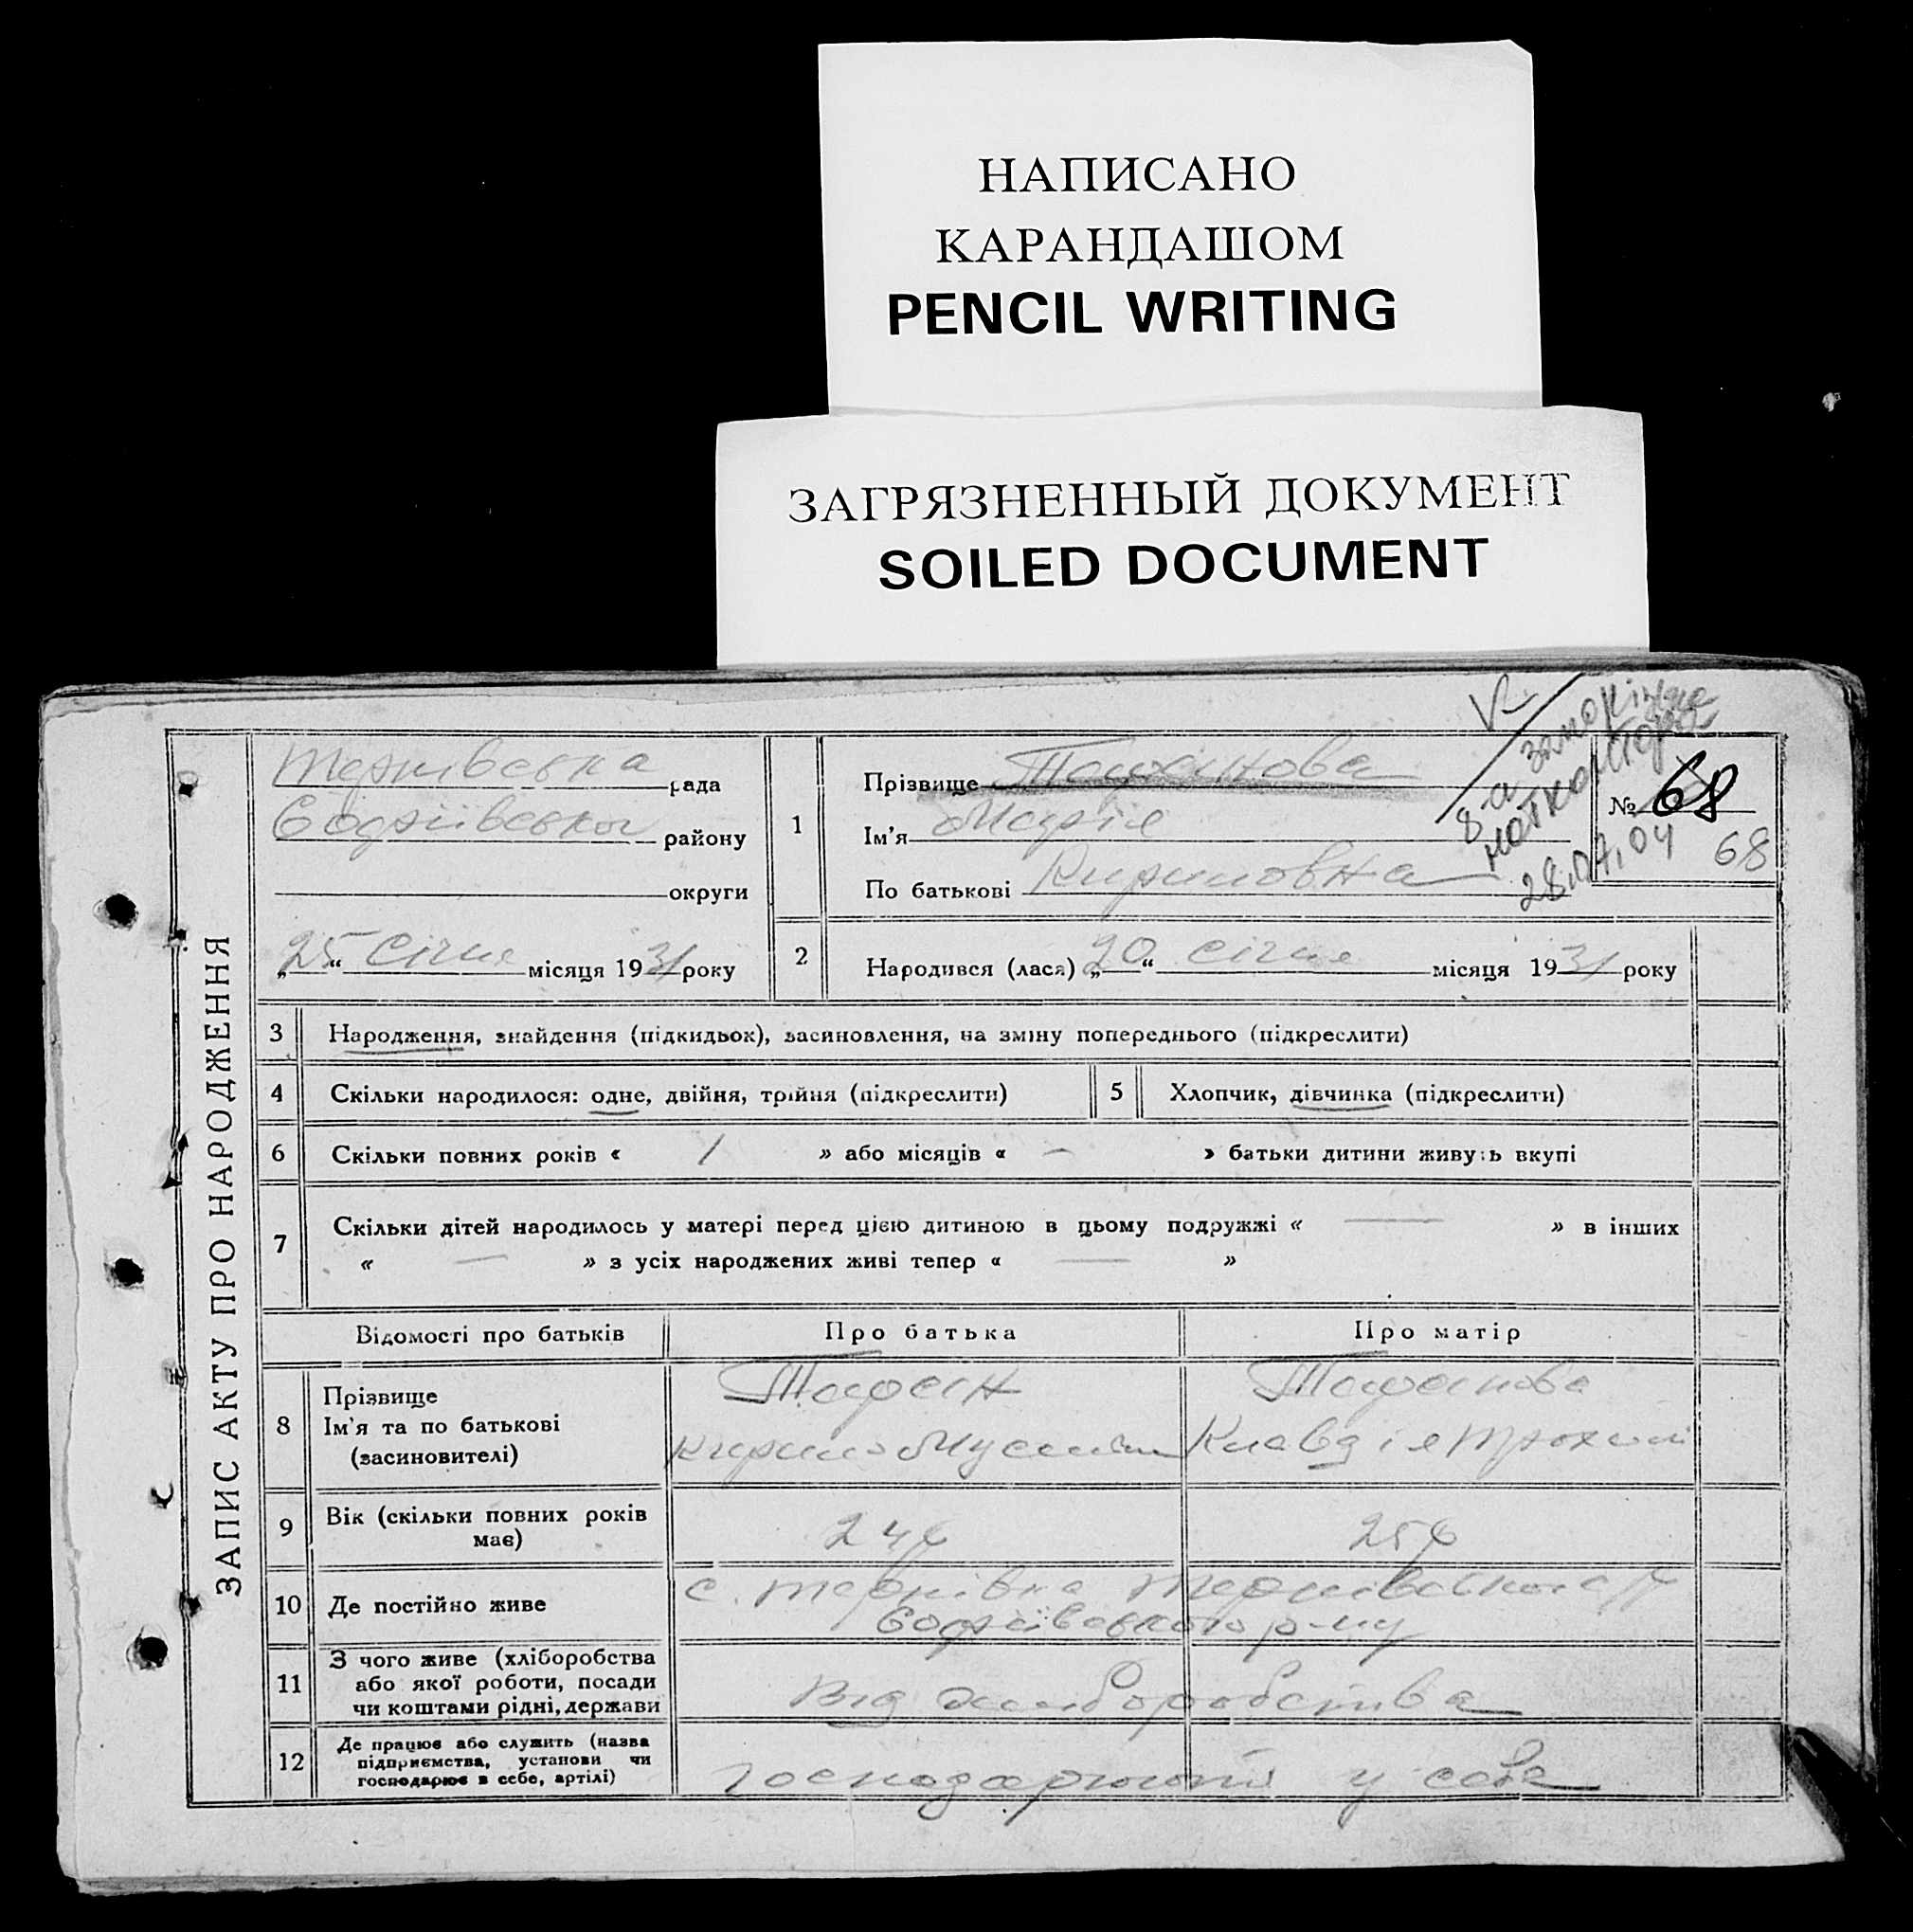 НАПИСАНО
КАРАНДАШОМ
PENCIL WRITING
ЗАГРЯЗНЕННЫЙ ДОКУМЕНТ
SOILED DOCUMENT
ЗАПИС АКТУ ПРО НАРОДЖЕННЯ
Тернівська рада
Софіївськог району
округи
„25“ Січня місяця 1931 року
1
Прізвище
Ім'я Марія
По батькові Кириловна
8-а запоріжна
нотконтора
28.07.04
№ 68
68
2
Народився (лася) „20“ січня місяця 1931 року
3 Народження, знайдення (підкидьох), засиновлення, на зміну попереднього (підкреслити)
4 Скільки народилося: одне, двійня, трійня (підкреслити)
5 Хлопчик, дівчинка (підкреслити)
6 Скільки повних років « 1 » або місяців « — » батьки дитини живуть вкупі
7 Скільки дітей народилось у матері перед цією дитиною в цьому подружжі « — » в інших
« — » з усіх народжених живі тепер « — »
Відомості про батьків Про батька Про матір
8 Прізвище
Ім'я та по батькові
(засиновителі)
Кирило
Клавдія Трохим
9 Вік (скільки повних років
має)
24 25
10 Де постійно живе
с. Тернівка Тернівської с/р
Софіївського р-ну
11 З чого живе (хліборобства
або якої роботи, посади
чи коштами рідні, держави
Від хліборобства
12 Де працює або служить (назва
підприємства, установи чи
господарює в себе, артілі)
господарюють у себе